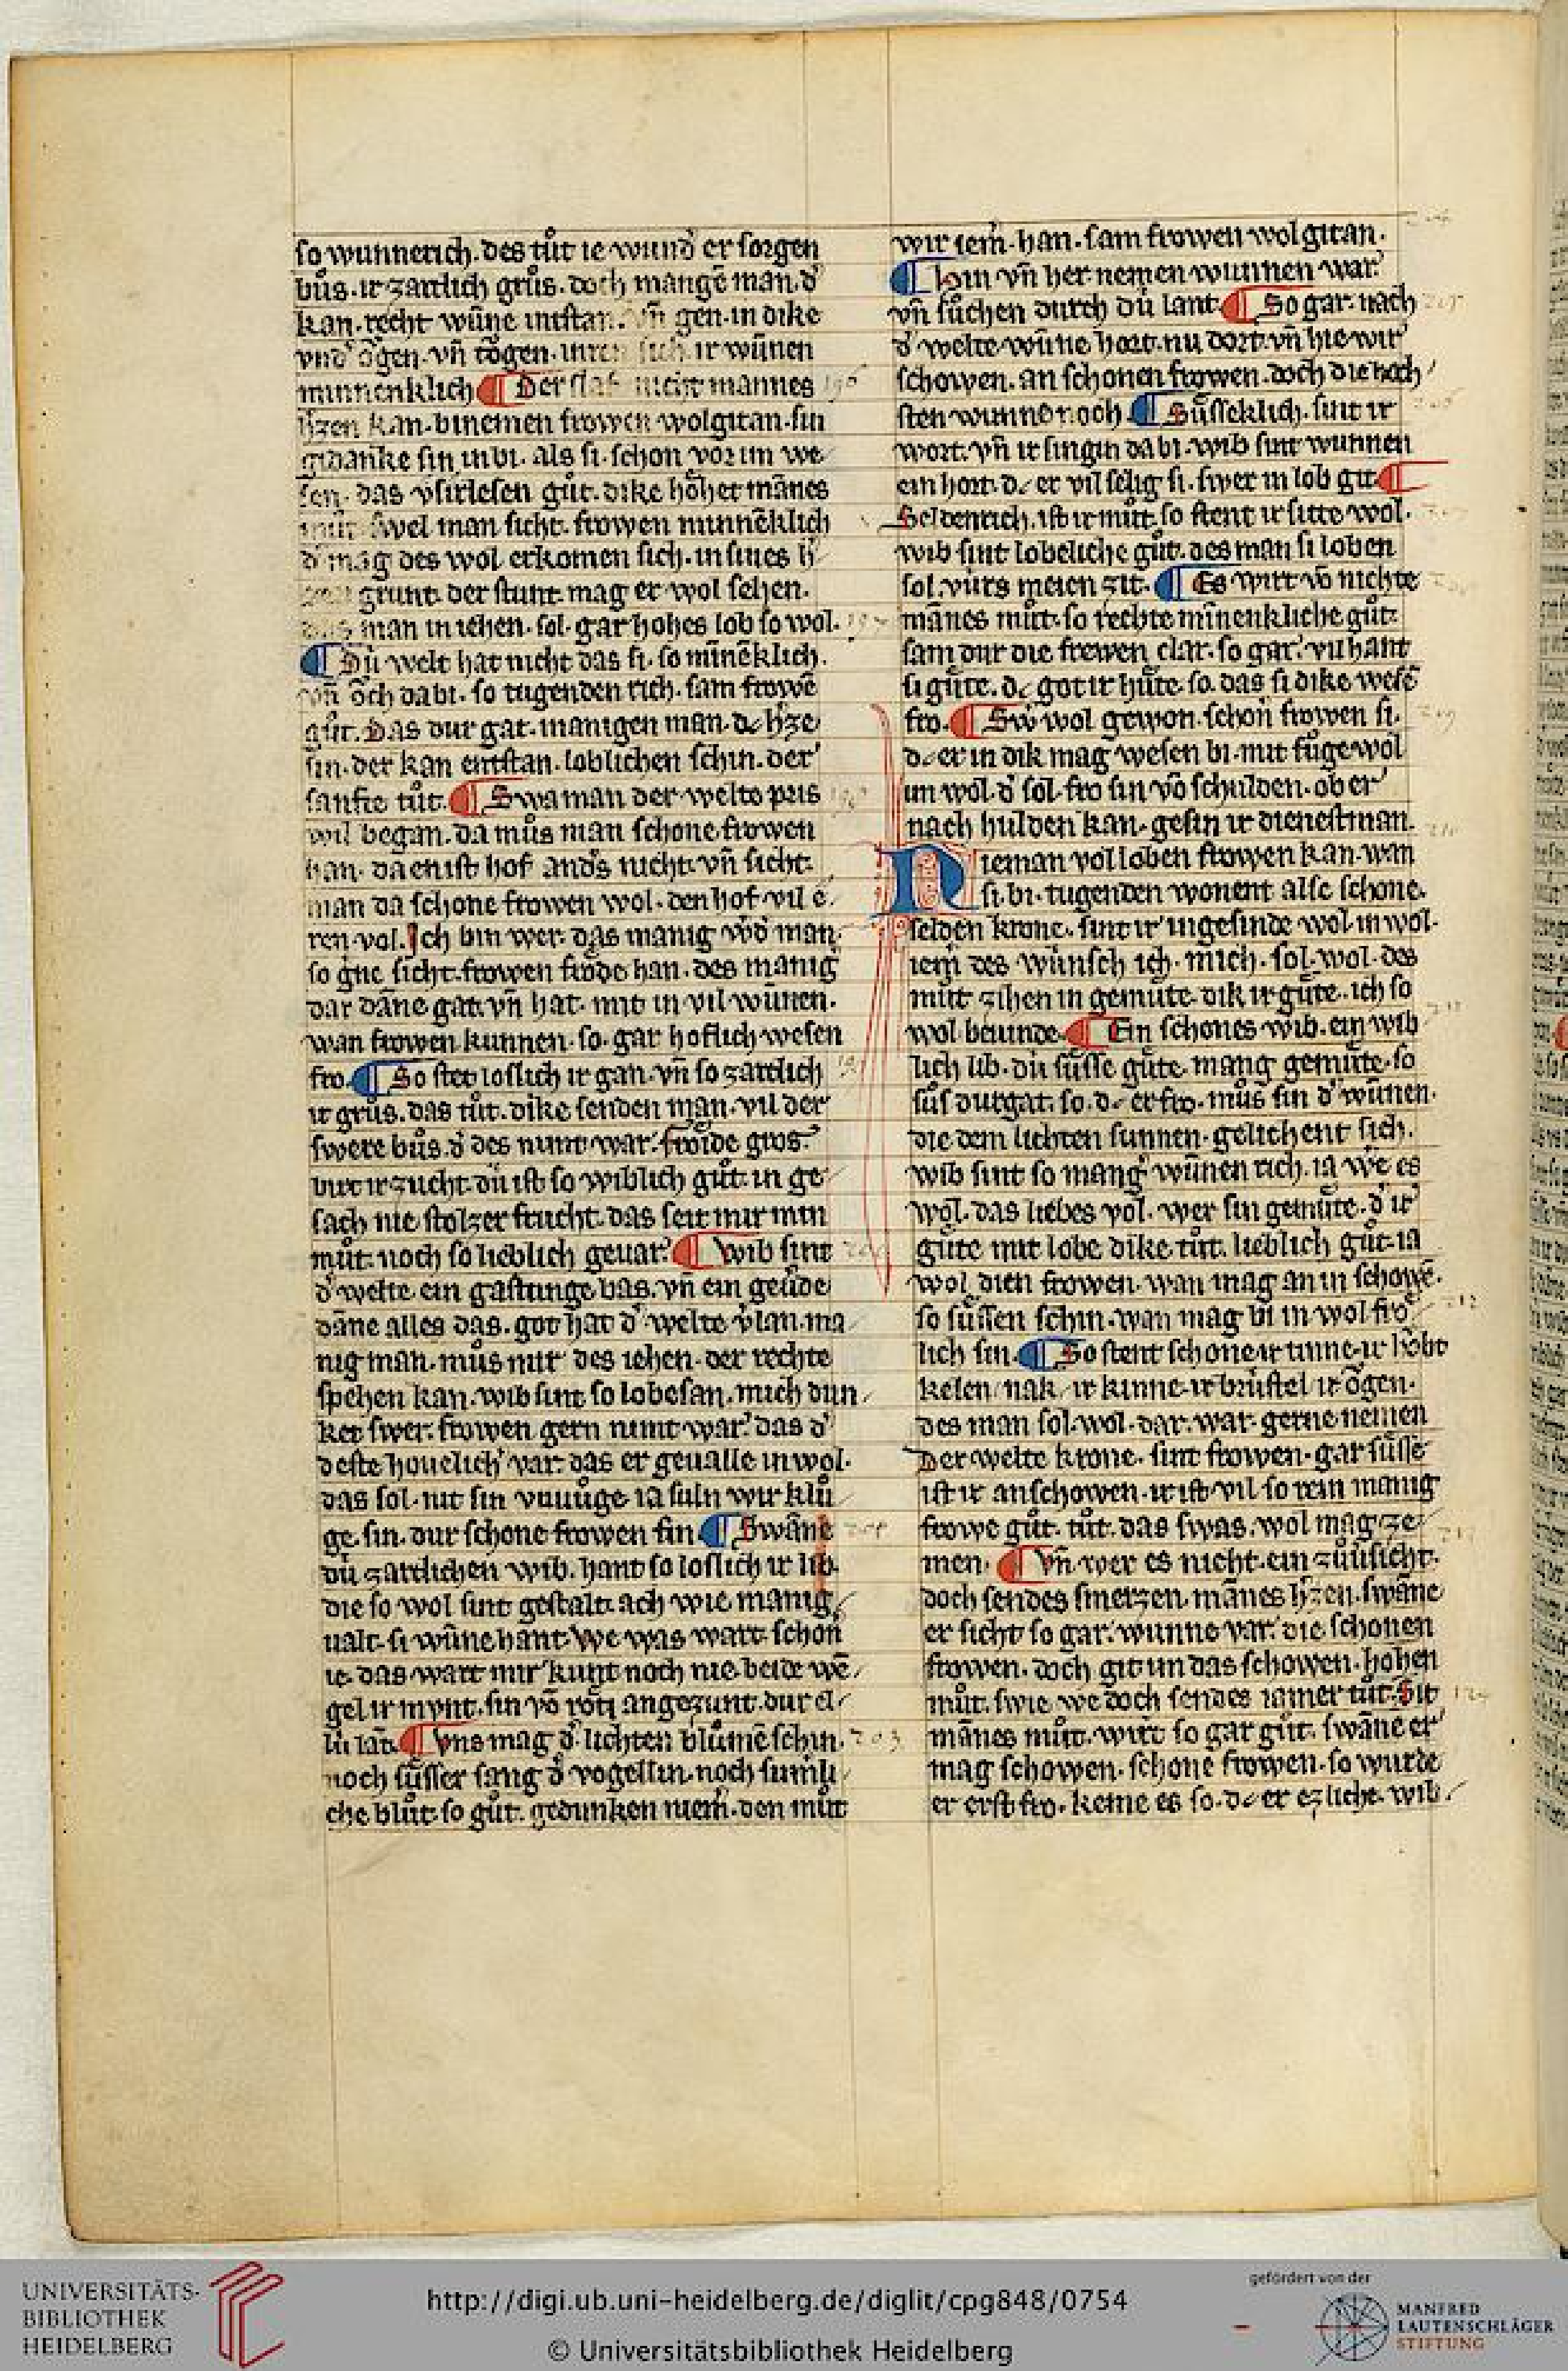 so wunnerich. des tůt ie wund͛ er sorgen
bůs. ir zartlich grůs. doch mangē man. d͛
kan. recht wūne intstan. vn̄ gen. in dike
vnd͛ ǒgen. vn̄ tǒgen. inren sich. ir wūnen
minnenklich ¶ Der slaf nicht mannes
h͛zen kan. binemen frowen wolgitan. sin
gidanke sin in bi. als si. schon vor im we
sen. das vsirlesen gůt. dike hoͤhet mānes
můt. Swel man sicht. frowen minnēklich
d͛ mag des wol erkomen sich. in sines h͛
zen grunt. der stunt. mag er wol sehen.
das man in iehen. sol. gar hohes lob so wol.
¶ Dů welt hat nicht das si. so minēklich.
vn̄ ǒch dabi. so tugenden rich. sam frowē
gůt. Das dur gat. manigen man. dc h͛ze
sin. der kan entstan. loblichen schin. der
sanfte tůt. ¶ Swa man der welte pris
wil began. da můs man schone frowen
han. da enist hof and͛s nicht. vn̄ sicht.
man da schone frowen wol. den hof vil e
ren vol. Ich bin wer. das manig w͛d͛ man
so g͛ne sicht. frowen froͤde han. des manig
dar dāne gat. vn̄ hat. mit in vil wūnen.
wan frowen kunnen. so. gar hoflich wesen
fro. ¶ So stet loslich ir gan. vn̄ so zartlich
ir grůs. das tůt. dike senden man. vil der
swere bůs. d͛ des nimt war. froͤide gros.
birt ir zucht. dů ist so wiblich gůt. in ge
sach nie stolzer frucht. das seit mir min
můt. noch so lieblich geuar. ¶ Wib sint
d͛ welte. ein gastunge bas. vn̄ ein geůde
dāne alles das. got hat d͛ welte v͛lan. ma
nig man. můs mir des iehen. der rechte
spehen kan. wib sint so lobesan. mich dun
ket swer. frowen gern nimt war. das d͛
deste houelich͛ var. das er geualle in wol.
das sol. nit sin vnuůge. ia suln wir klů
ge. sin. dur schone frowen fin ¶ Swāne
dů zartlichen wib. hant so loslich ir lib.
die so wol sint gestalt. ach wie manig
ualt. si wūne hant. We was wart schon͛
ie. das wart mir kunt noch nie. beide wē
gel ir mvnt. sin vō roͤti angezunt. dur cl
lů lāt. ¶ Vns mag d͛. lichten blůmē schin.
noch sůsser sang d͛ vogellin. noch sumli
che blůt. so gůt. gedunken niem͛. den můt
wir iem͛. han. sam frowen wol gitan.
¶ Hin vn̄ her nemen wunnen war.
vn̄ sůchen durch dů lant. ¶ So gar. nach
d͛ welte wūne hort. nu dort. vn̄ hie wir
schowen. an schonen frowen. doch die hoͤch
sten wunne noch ¶ Sůsseklich. sint ir
wort. vn̄ ir singin dabi. wib sint wunnen
ein hort. dc er vil selig si. swer in lob git ¶
Seldenrich. ist ir můt. so stent ir sitte wol.
wib sint lobeliche gůt. des man si loben
sol. vůrs meien zit. ¶ Es wirt vō nichte
mānes můt. so rechte mīnenkliche gůt.
sam dur die frowen clar. so gar. vil hant
si gůte. dc got ir hůte. so. das si dike wesē
fro. ¶ Sw͛ wol gewon. schon͛ frowen si.
dc er in dik mag wesen bi. mit fůge wol
im wol. d͛ sol. fro sin vō schulden. ob er
nach hulden kan. gesin ir dienestman.
Nieman vol loben frowen kan. wan
si. bi. tugenden wonent alse schone.
selden krone. sint ir ingesinde wol. in wol.
iem͛ des wůnsch ich. mich. sol. wol. des
můt zihen in gemůte. dik ir gůte. ich so
wol beuinde. ¶ Ein schones wib. ein wib
lich lib. dů sůsse gůte. mang gemůte. so
sůs durgat. so. dc er fro. můs sin d͛ wūnen.
die dem liechten sunnen. gelichent sich.
wib sint so mang͛ wūnen rich. ia we es
wol. das liebes vol. wer sin gemůte. d͛ ir
gůte mit lobe dike tůt. lieblich gůt. ia
wol dien frowen. wan mag an in schowē.
so sůssen schin. wan mag bi in wol fro
lich sin. ¶ So stent schone ir tinne. ir hoͤbt
kelen nak. ir kinne. ir brůstel ir ǒgen.
des man sol. wol. dar. war. gerne nemen
Der welte krone. sint frowen. gar sůsse
ist ir anschowen. ir ist vil so rein manig
frowe gůt. tůt. das swas. wol mag ze
men. ¶ Vn̄ wer es nicht. ein zůůsicht.
doch sendes smerzen. mānes h͛zen. swāne
er sicht so gar. wunne var. die schonen
frowen. doch git im das schowen. hohen
můt. swie we doch sendes iamer tůt. Sit
mānes můt. wirt so gar gůt. swāne er
mag schowen. schone frowen. so wurde
er erst fro. keme es so. dc er ezliche. wib
UNIVERSITÄTS-
BIBLIOTHEK
HEIDELBERG
http://digi.ub.uni-heidelberg.de/diglit/cpg848/0754
© Universitätsbibliothek Heidelberg
gefördert von der
MANFRED
LAUTENSCHLÄGER
STIFTUNG